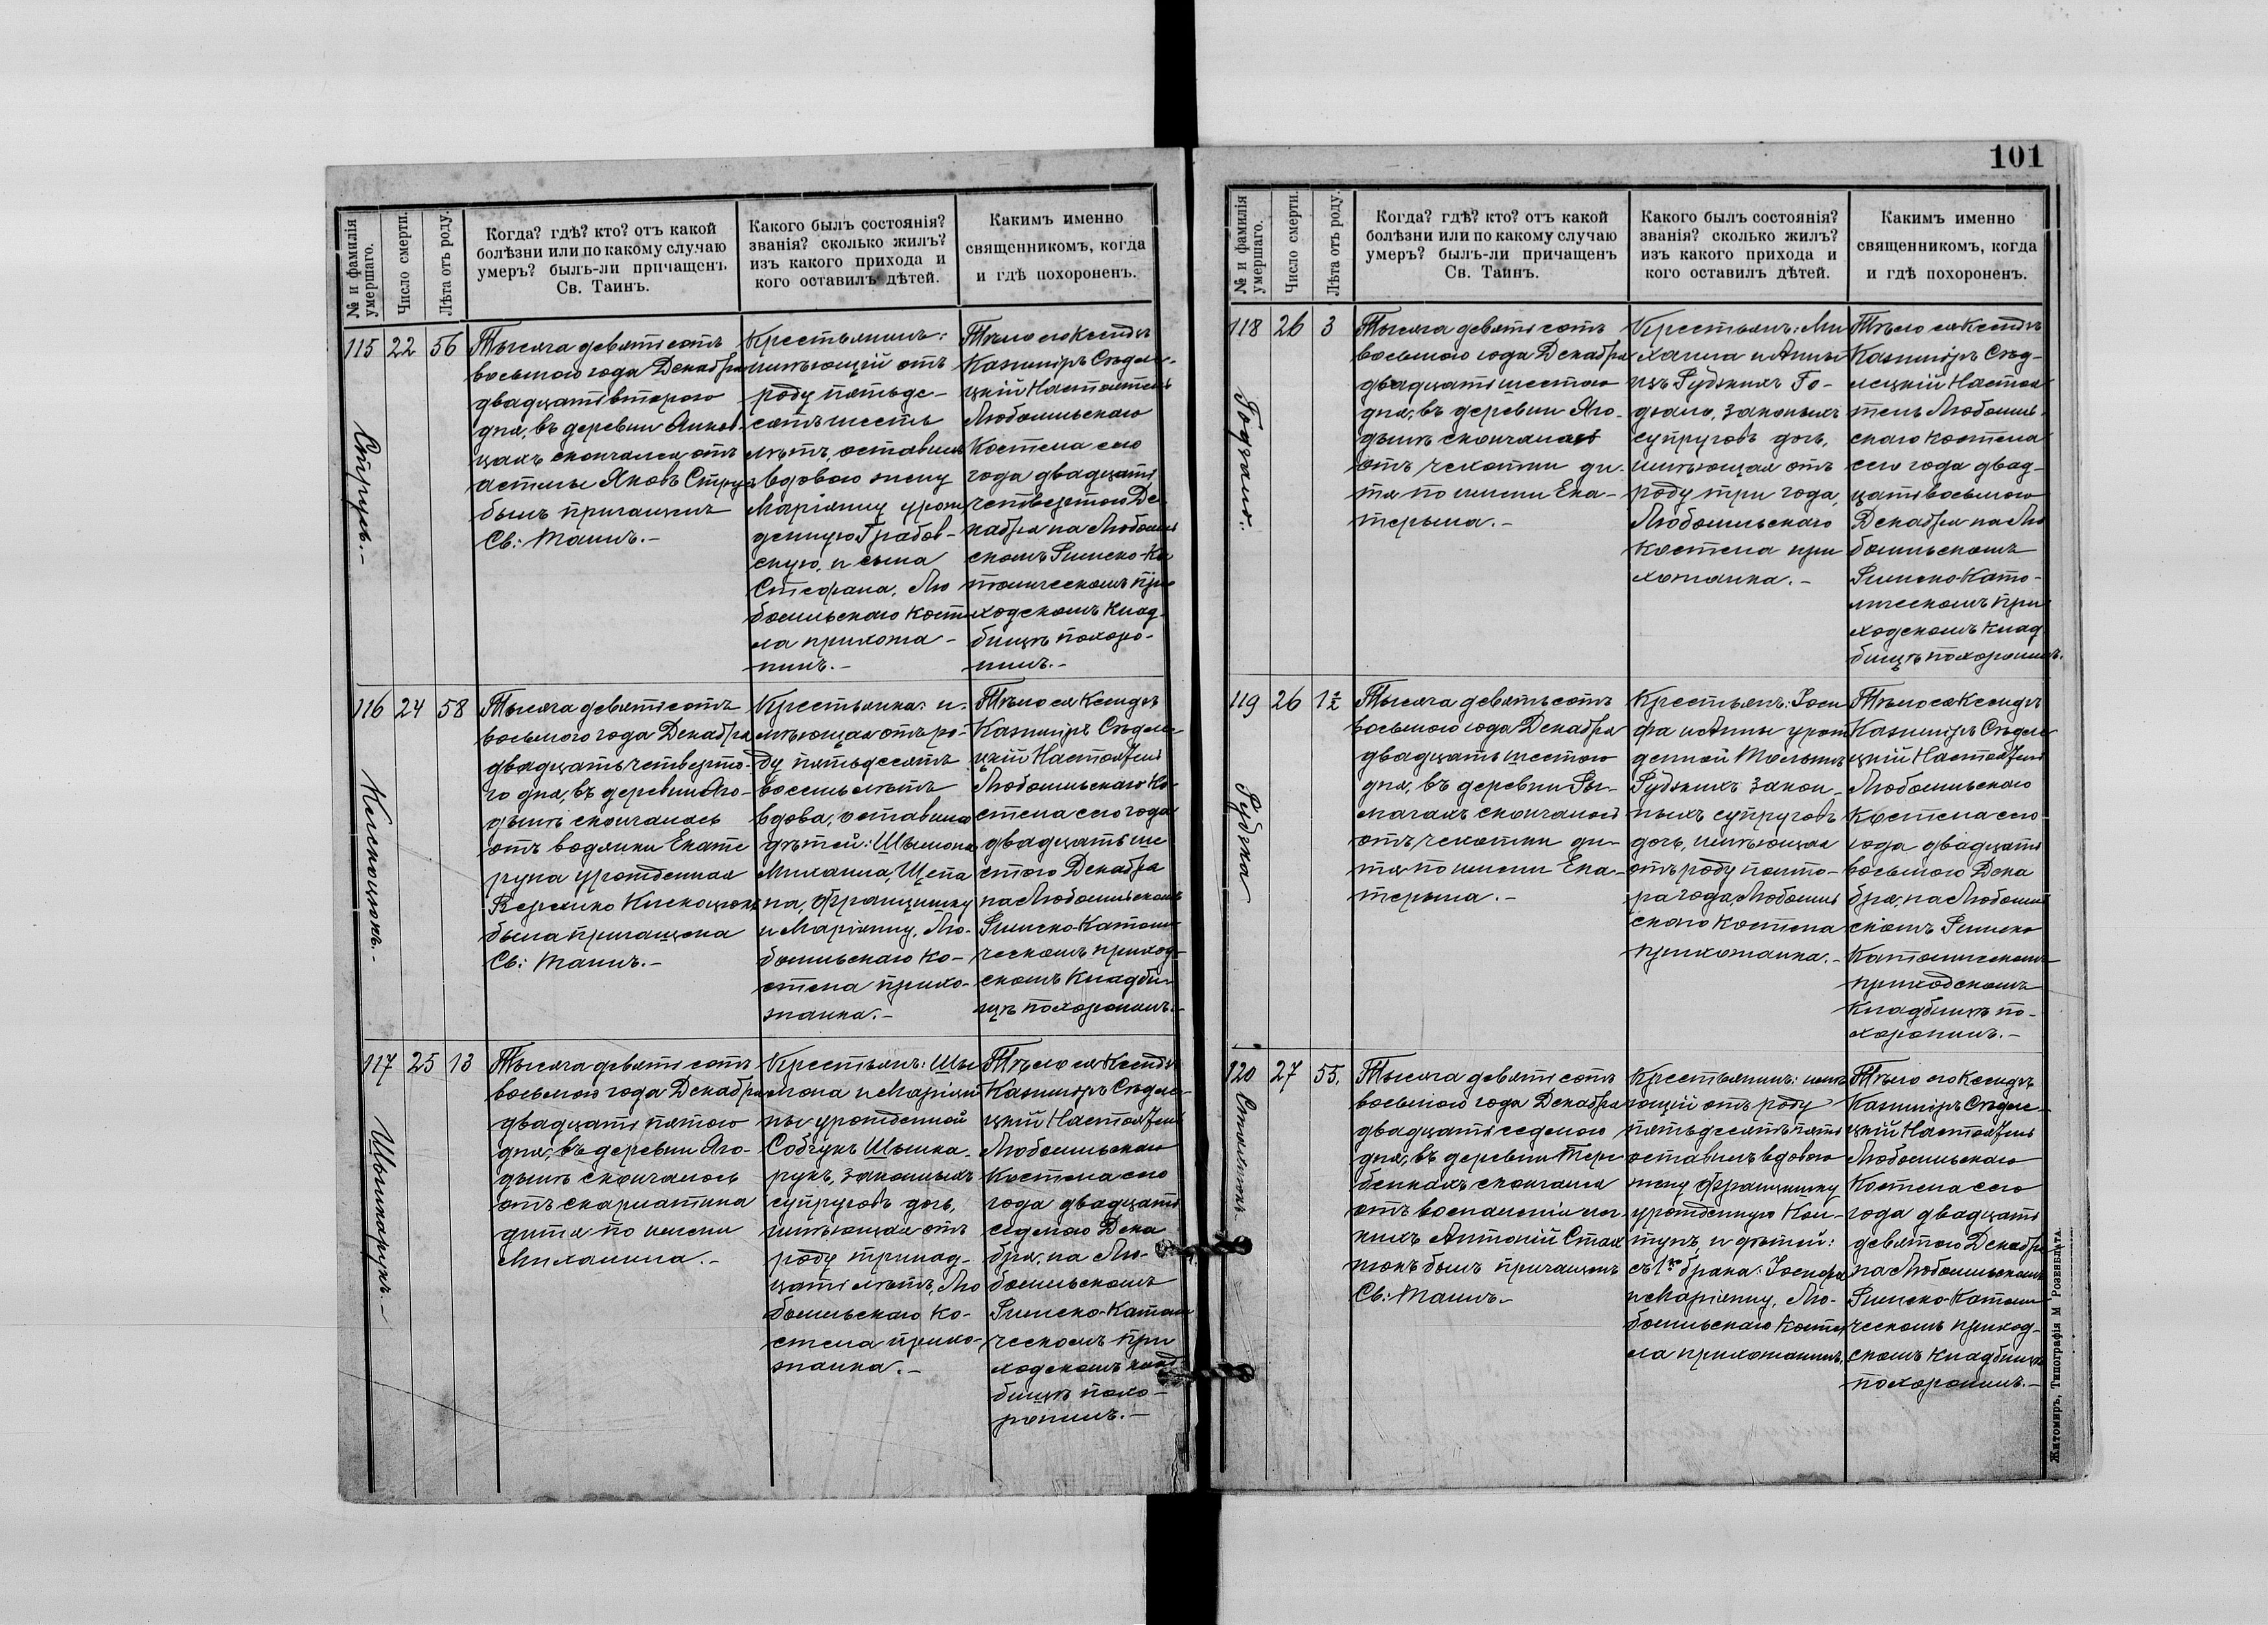 101
№ и фамилія умершаго.
Число смерти.
Лѣта отъ роду.
Когда? гдѣ? кто? отъ какой
болѣзни или по какому случаю
умеръ? былъ-ли причащенъ
Св. Таинъ.
Какого былъ состоянія?
званія? сколько жилъ?
изъ какого прихода и
кого оставилъ дѣтей.
Какимъ именно
священникомъ, когда
и гдѣ похороненъ.
115
22
56
Струкъ.-
Тысяча девятьсотъ
восьмого года Декабря
двадцатьвторого
дня, въ деревни
цахъ скончался отъ
астмы Яковъ Струкъ
былъ причащенъ
Св: Таинъ.-
Крестьянинъ:
имѣющій отъ
роду пятьде-
сятъ шесть
лѣтъ, оставилъ
вдовою жену
Маріянну урож
денную Грабов-
скую, и сына
Стефана, Лю
бомльскаго косте
ла прихожа-
нинъ.-
Тѣло его Ксендзъ
Казиміръ Сѣдле-
цкій Настоятель
Любомльскаго
Костела сего
года двадцать
четвертого Де
кабря на Любомль
скомъ Римско-Ка
толическомъ при
ходскомъ клад-
бищѣ похоро-
нилъ.-
116
24
58
Тысяча девятьсотъ
восьмого года Декабря
двадцать четверто-
го дня, въ деревни Яго-
дынѣ скончалась
отъ водянки Екате
рина урожденная
была причащена
Св: Таинъ.-
Крестьянка: и-
мѣющая отъ ро-
ду пятьдесятъ
восемь лѣтъ
вдова, оставила
дѣтей: Шымона
Михаила, Щепа
на, Францишку
и Маріянну, Лю-
бомльскаго Ко-
стела прихо-
жанка.-
Тѣло ея Ксендзъ
Казиміръ Сѣдле-
цкій Настоятель
Любомльскаго Ко-
стела сего года
двадцать ше
стого Декабря
на Любомльскомъ
Римско-Католи-
ческомъ приход-
скомъ Кладби-
щѣ похоронилъ.-
117
25
13
Шымкарукъ.-
Тысяча девятьсотъ
восьмого года Декабря
двадцать пятого
дня, въ деревни Яго-
дынѣ скончалось
отъ скарлатина
дитя по имени
Михалина.-
Крестьянъ: Шы
мона и Маріан
ны урожденной
Собчукъ Шымка-
рукъ, законныхъ
супруговъ дочь,
имѣющая отъ
роду тринад-
цать лѣтъ, Лю
бомльскаго Ко-
стела прихо-
жанка.-
Тѣло ея Ксендзъ
Казиміръ Сѣдле-
цкій Настоятель
Любомльскаго
Костела сего
года двадцать
седмого Дека
бря, на Лю-
бомльскомъ
Римско-Католи
ческомъ при
ходскомъ клад
бищѣ похо-
ронилъ.-
№ и фамилія умершаго.
Число смерти.
Лѣта отъ роду.
Когда? гдѣ? кто? отъ какой
болѣзни или по какому случаю
умеръ? былъ-ли причащенъ
Св. Таинъ.
Какого былъ состоянія?
званія? сколько жилъ?
изъ какого прихода и
кого оставилъ дѣтей.
Какимъ именно
священникомъ, когда
и гдѣ похороненъ.
118
26
3
Тысяча девятьсотъ
восьмого года Декабря
двадцать шестого
дня, въ деревни Яго-
дынѣ скончалось
отъ чехотки ди-
тя по имени Ека-
терына.-
Крестьянъ: Ми
хаила и Анны
изъ Рудзкихъ
законныхъ
супруговъ дочь,
имѣющая отъ
роду три года,
Любомльскаго
костела при
хожанка.-
Тѣло ея Ксендзъ
Казиміръ Сѣд-
лецкій Настоя
тель Любомль-
скаго костела
сего года двад-
цать восьмого
Декабря на Лю
бомльскомъ
Римско-Като-
лическомъ при
ходскомъ клад
бищѣ похоронилъ.
119
26
1½
Рудзка
Тысяча девятьсотъ
восьмого года Декабря
двадцать шестого
дня, въ деревни Ры-
мачахъ скончалось
отъ чехотки ди-
тя по имени Ека-
терына.-
Крестьянъ: Іоси
фа и Анны урож
денной
Рудзкихъ закон-
ныхъ супруговъ
дочь, имѣющая
отъ роду полто-
ра года, Любомль
скаго Костела
прихожанка.-
Тѣло ея Ксендзъ
Казиміръ Сѣдле-
цкій Настоятель
Любомльскаго
Костела сего
года двадцать
восьмого Дека
бря, на Любомль
скомъ Римско
Католическомъ
приходскомъ
Кладбищѣ по-
хоронилъ.-
120
27
55.
Тысяча девятьсотъ
восьмого года Декабря
двадцать седмого
дня, въ деревни Тере
бейкахъ скончался
отъ воспаленія лег
кихъ Антоній Стах
нюкъ былъ причащенъ
Св: Таинъ.-
Крестьянинъ: имѣ
ющій отъ роду
пятьдесятъ пять
оставилъ вдовою
жену Францишку
урожденную
и дѣтей:
съ 1го брака: Іосифа
и Маріянну, Лю-
бомльскаго Косте
ла прихожанинъ.
Тѣло его Ксендзъ
Казиміръ Сѣдле-
цкій Настоятель
Любомльскаго
Костела сего
года двадцать
девятого Декабря
на Любомльскомъ
Римско-Католи
ческомъ приход-
скомъ кладбищѣ
похоронилъ.-
Житомиръ, Типографія М Розенблата.